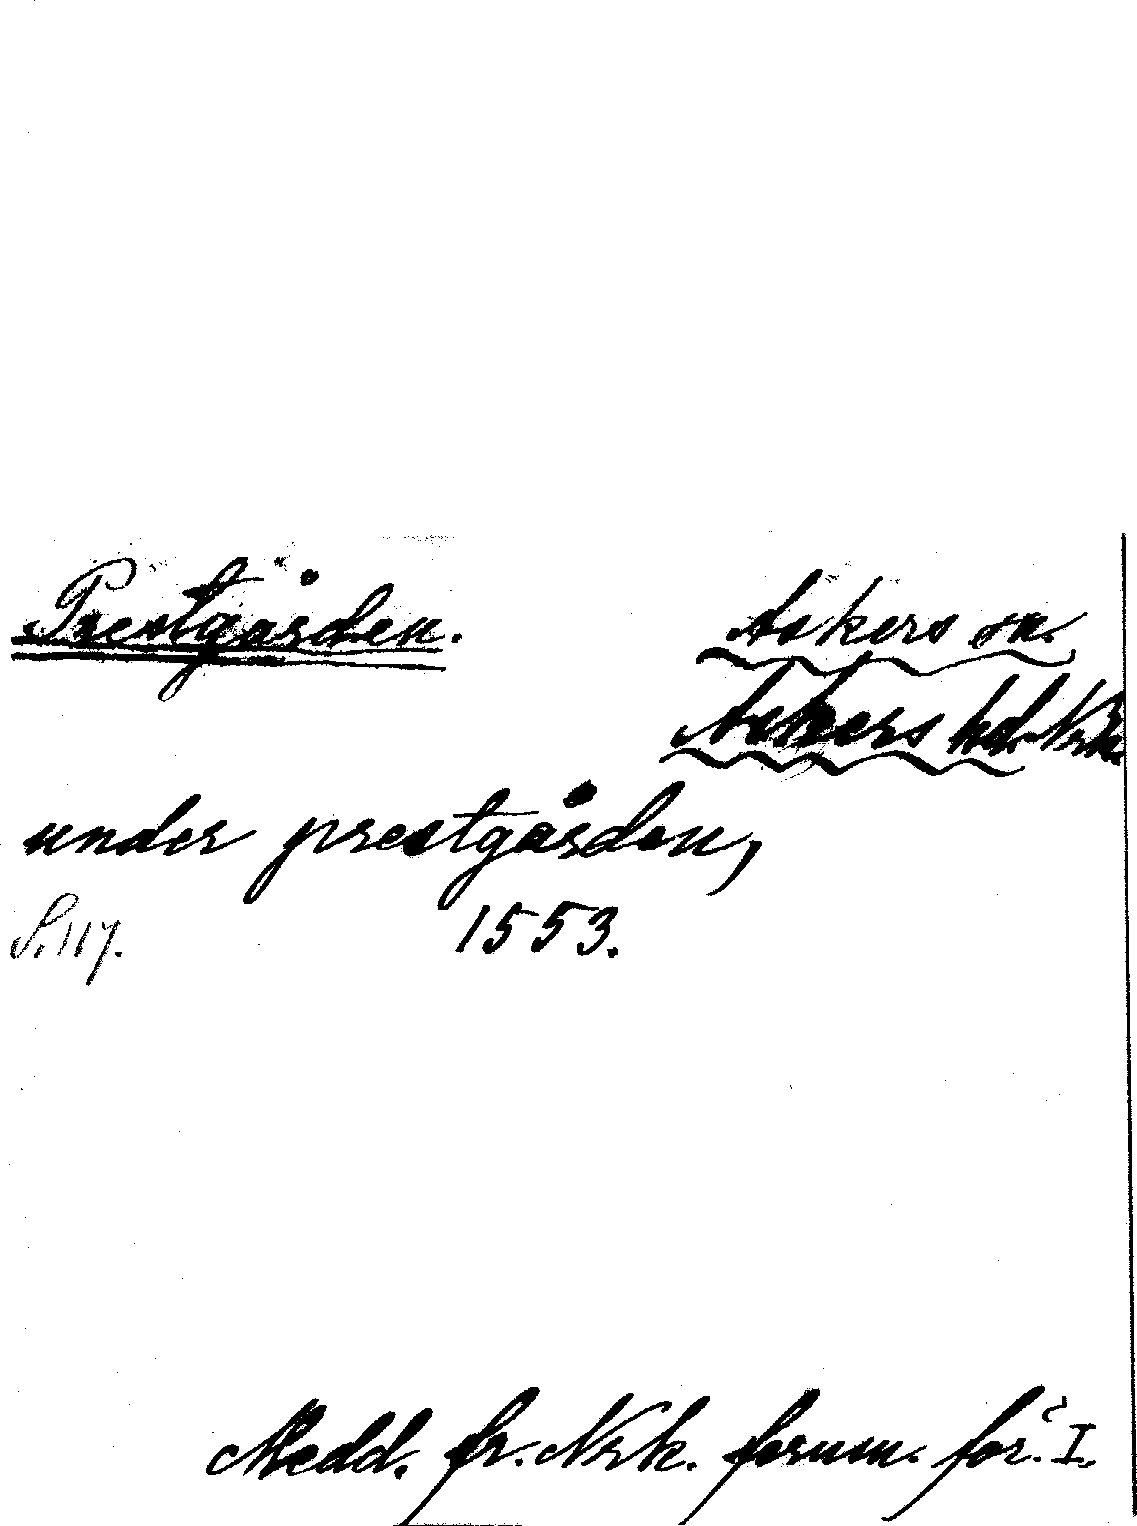 Prestgården.
Askers sn.
Askers hd. Nrk.
under prestgården,
S. 117. 1553.
Medd. fr. Nrk. fornm. för. I.